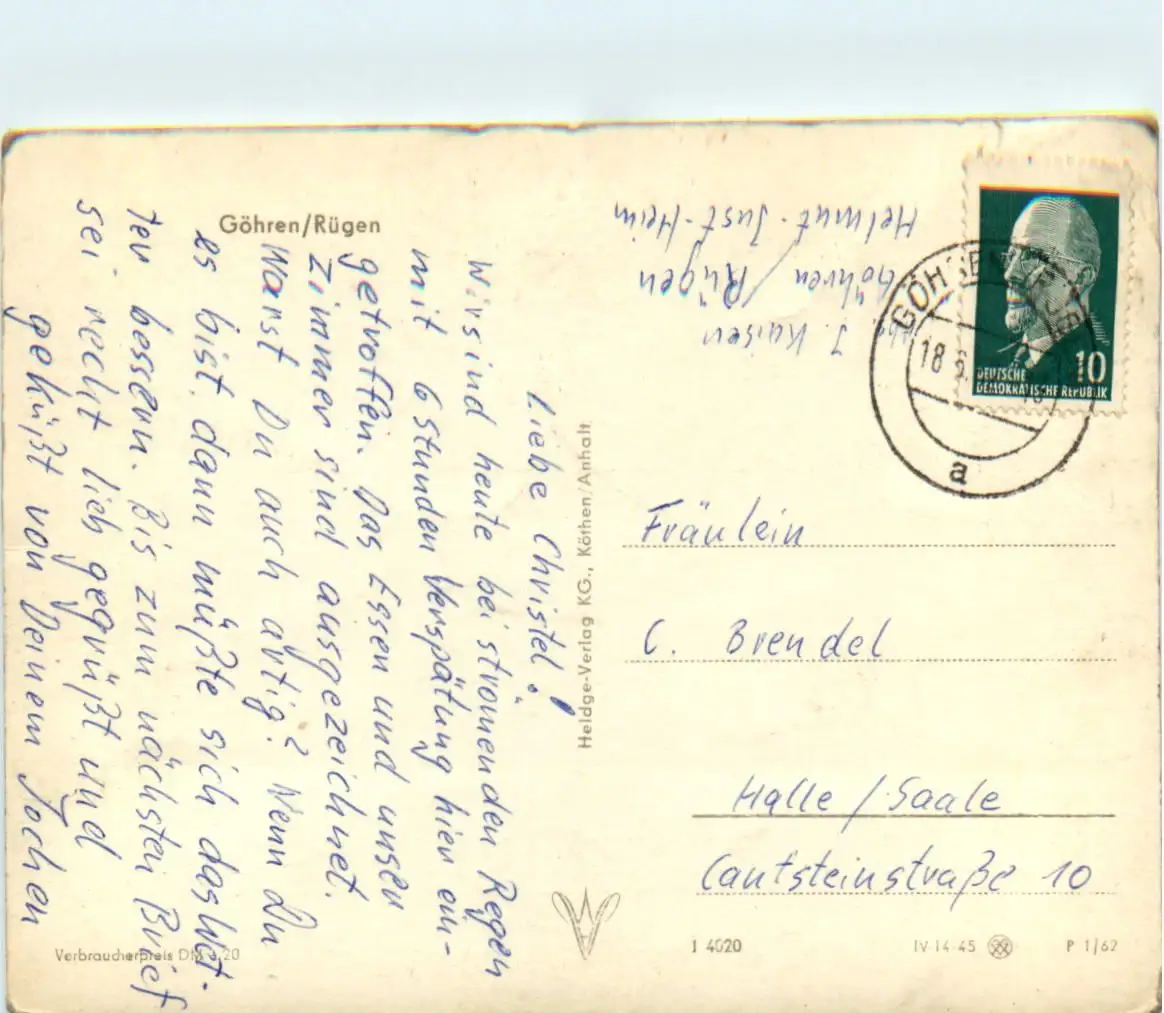 Göhren/Rügen
Liebe Christel!
Wir sind heute bei strömenden Regen
mit 6 Stunden Verspätung hier ein-
getroffen. Das Essen und unser
Zimmer sind ausgezeichnet.
Warst Du auch artig? Wenn Du
es bist, dann müßte sich das Wet-
ter bessern. Bis zum nächsten Brief
sei recht lieb gegrüßt und
geküßt von Deinem Jochen
Verbraucherpreis DM 0,20
Heldge-Verlag KG., Köthen/Anhalt
Abs. J. Kaiser
Göhren/Rügen
Helmut-Just-Heim
GÖHREN
18.6.
a
10
DEUTSCHE
DEMOKRATISCHE REPUBLIK
Fräulein
C. Brendel
Halle/Saale
Cantsteinstraße 10
I 4020
IV-14-45
P 1/62